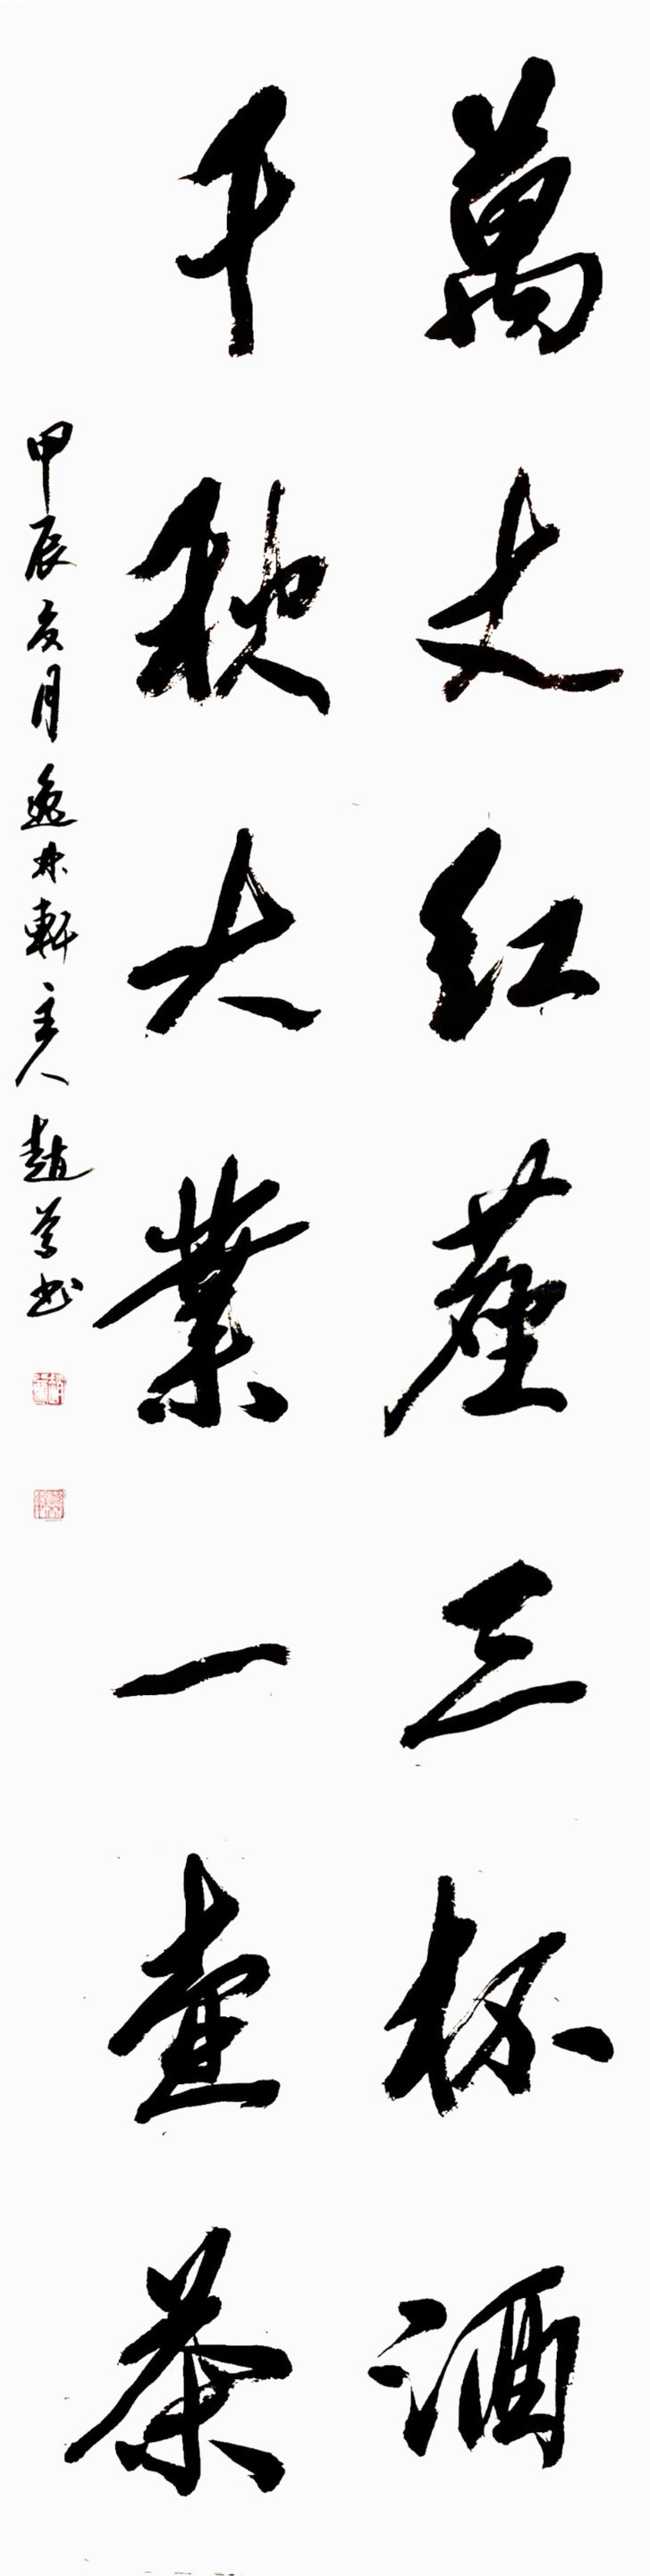 萬丈红塵三杯酒
千秋大業一壺茶
甲辰亥月逸林軒主人趙書